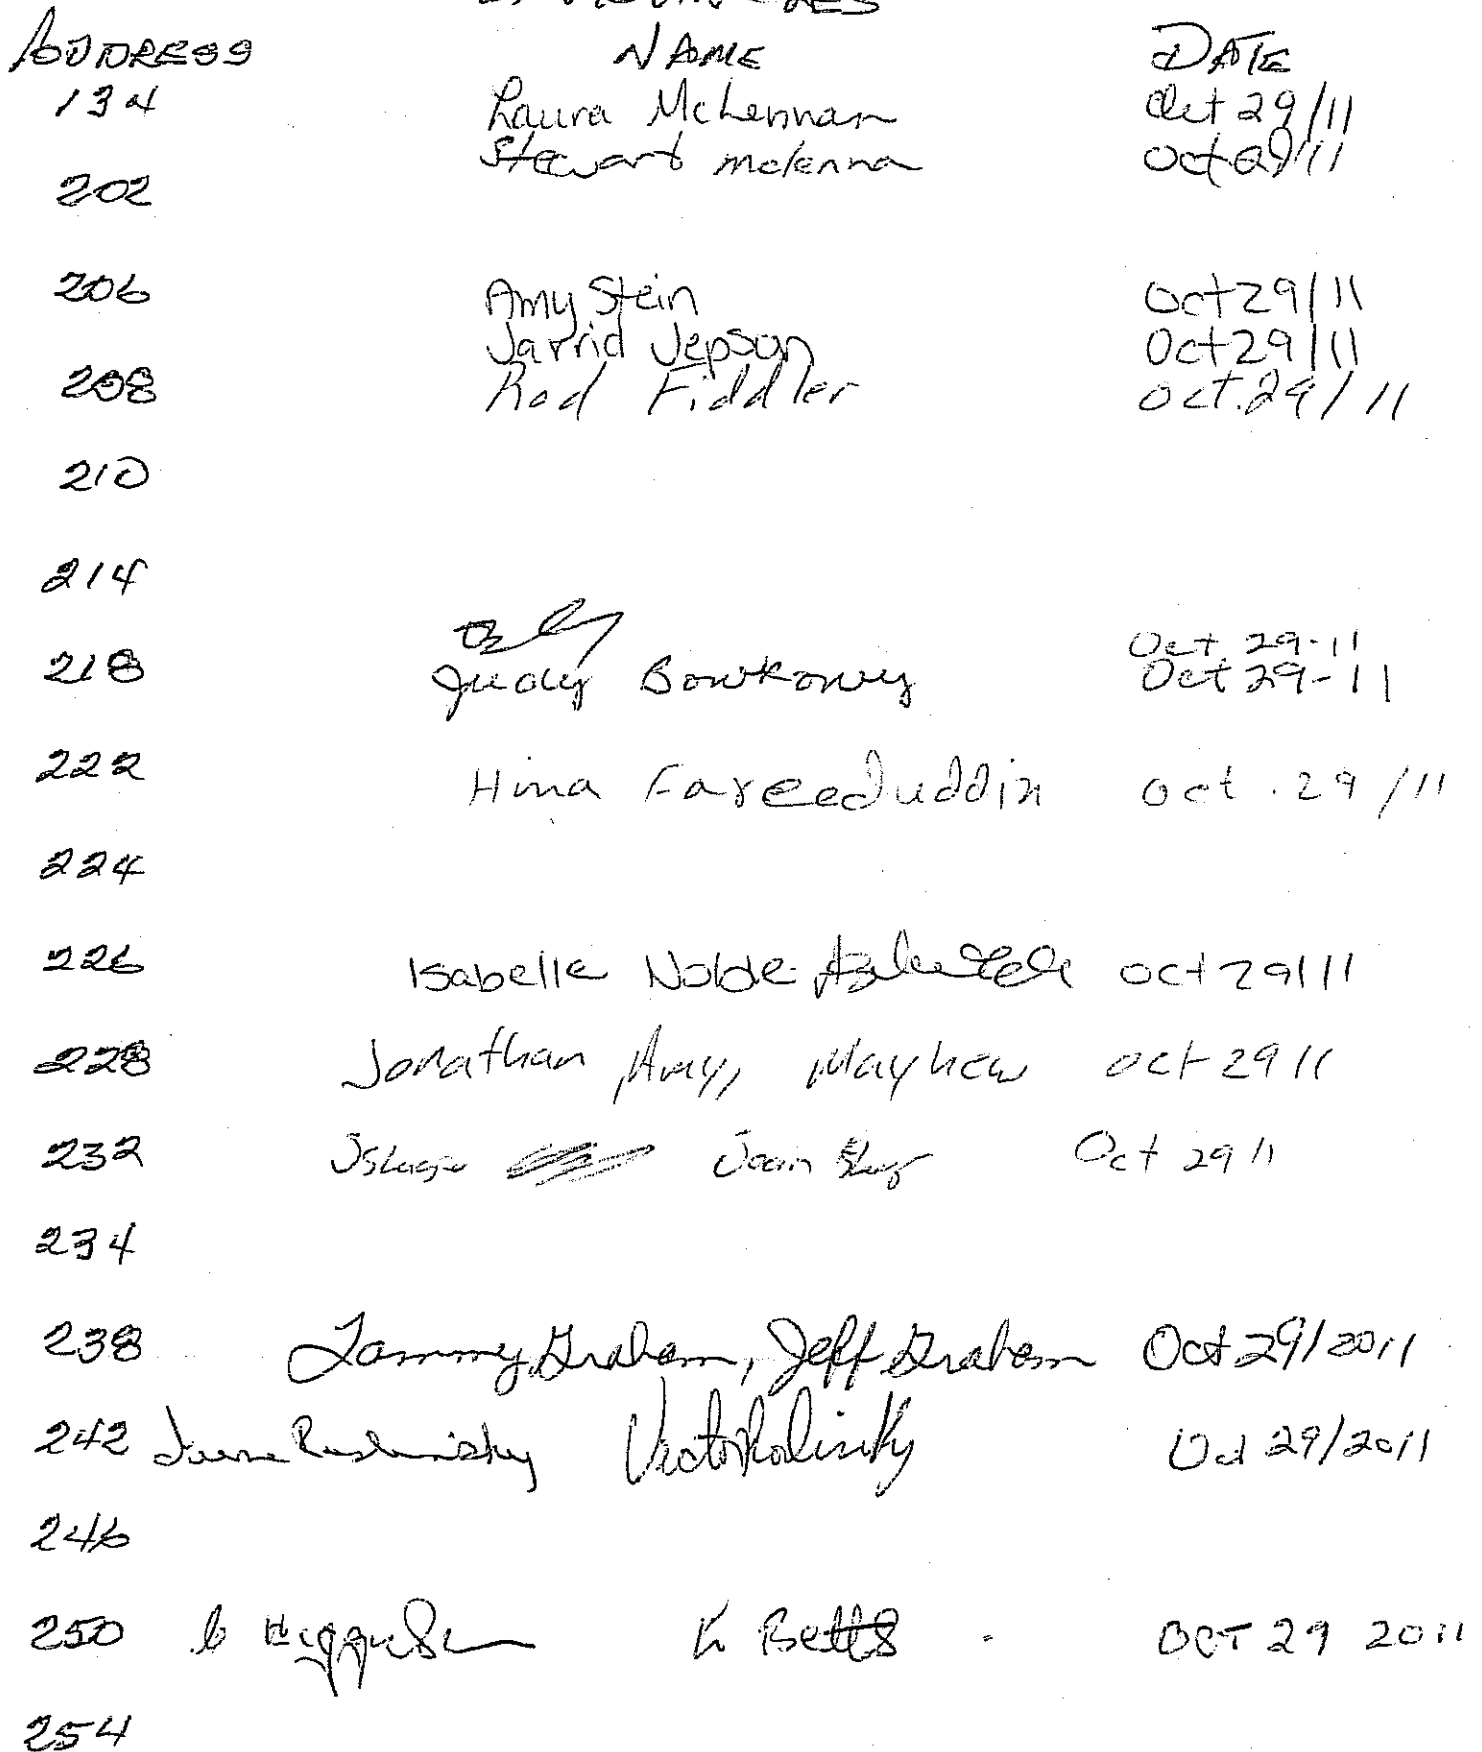 ADDRESS NAME DATE
134 Laura McLennan Oct 29/11
Stewart mclenna Oct 29/11
202
206 Amy Stein Oct 29/11
Jarrid Jepson Oct 29/11
208 Rod Fiddler Oct. 29/11
210
214
Oct 29-11
218 Judy Oct 29-11
222 Hina Fareeduddin Oct. 29/11
224
226 Isabelle Noble Oct 29/11
228 Jonathan, Amy, Mayhew Oct 29 11
232 Joan Oct 29 11
234
238 Tammy Graham, Jeff Graham Oct 29/2011
242 Victor Oct 29/2011
246
250 K Betts OCT 29 2011
254